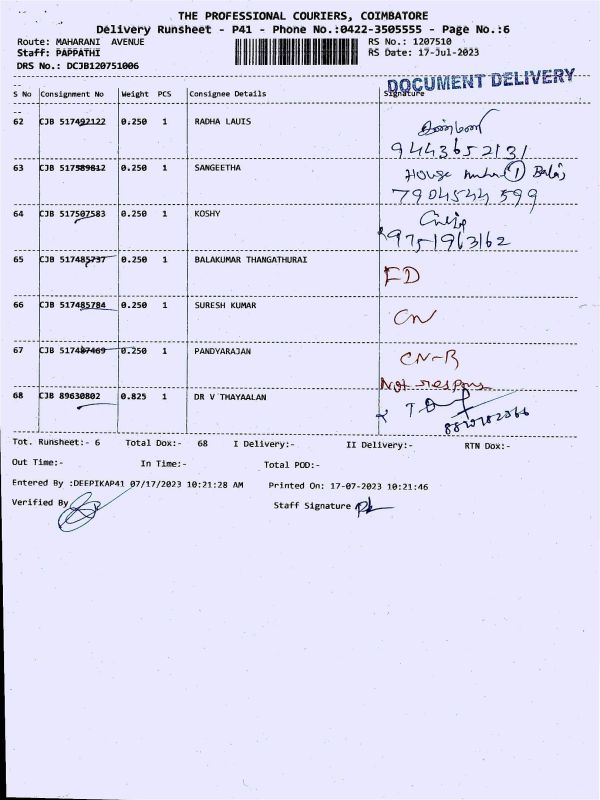 THE PROFESSIONAL COURIERS, COIMBATORE
Delivery Runsheet - P41 - Phone No.:0422-3505555 - Page No.:6
Route: MAHARANI AVENUE RS No.: 1207510
Staff: PAPPATHI RS Date: 17-Jul-2023
DRS No.: DCJB120751006
DOCUMENT DELIVERY
S No Consignment No Weight PCS Consignee Details Signature
62 CJB 517492122 0.250 1 RADHA LAUIS
9443652131
63 CJB 517589812 0.250 1 SANGEETHA House
7904544599
64 CJB 517507583 0.250 1 KOSHY
9751963162
65 CJB 517485737 0.250 1 BALAKUMAR THANGATHURAI ED
66 CJB 517485784 0.250 1 SURESH KUMAR CN
67 CJB 517487469 0.250 1 PANDYARAJAN CN-R
Not respons
68 CJB 89630802 0.825 1 DR V THAYAALAN
Tot. Runsheet:- 6 Total Dox:- 68 I Delivery:- II Delivery:- RTN Dox:-
Out Time:- In Time:- Total POD:-
Entered By :DEEPIKAP41 07/17/2023 10:21:28 AM Printed On: 17-07-2023 10:21:46
Verified By Staff Signature